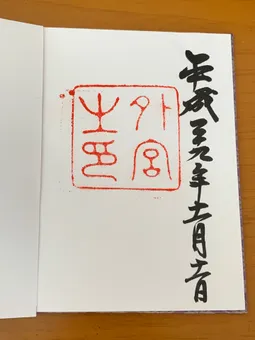 平成二九年十一月十一日
外宮
之印